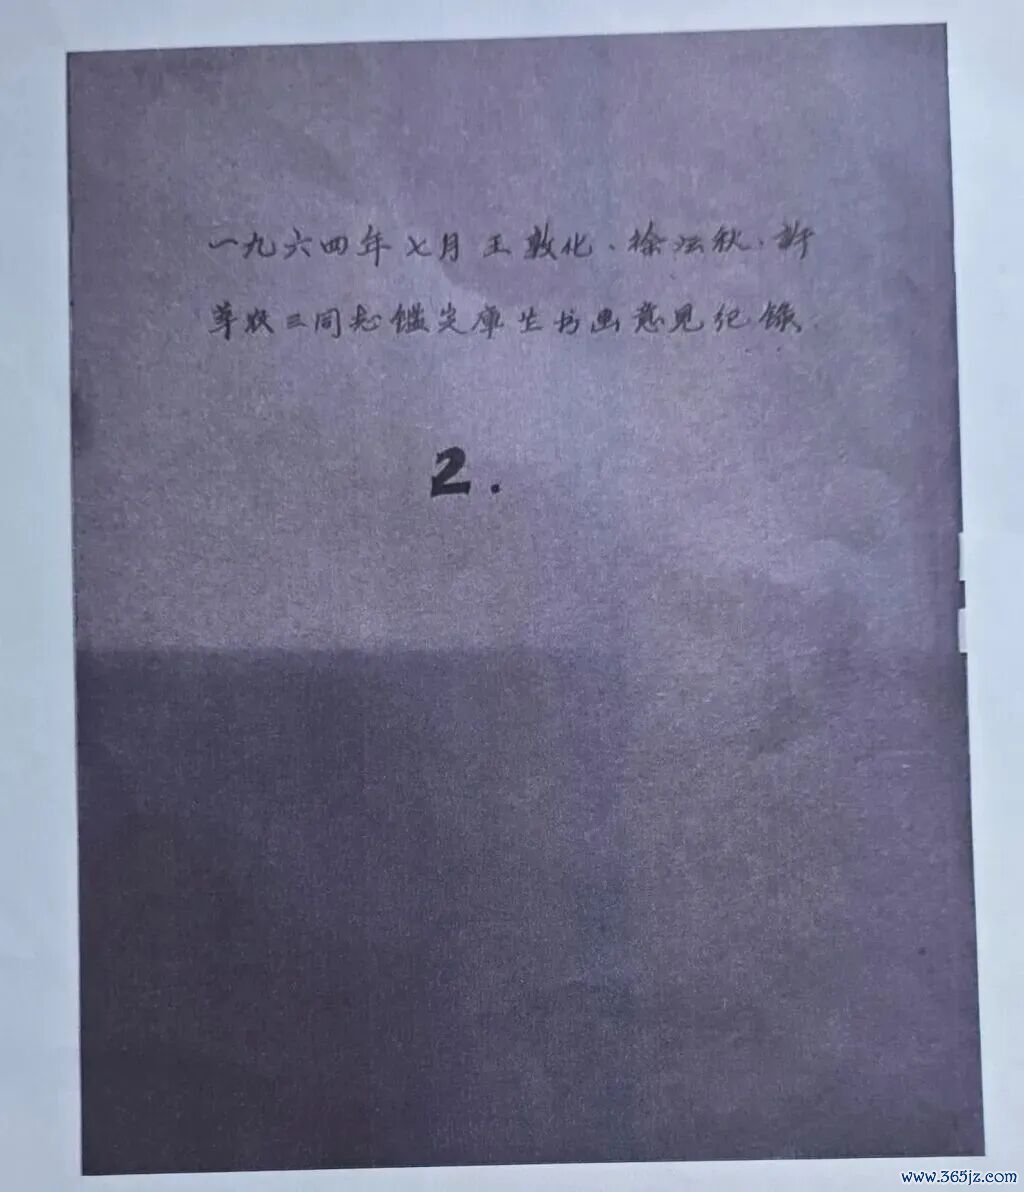 一九六四年七月王敦化、徐沄秋、許
莘农三同志鑑定庫生书画意见纪録
2.
www.365jz.com